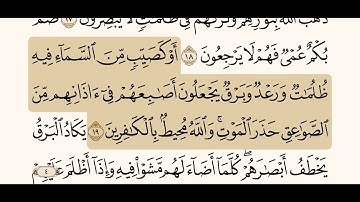 ذَهَبَ ٱللَّهُ بِنُورِهِمْ وَتَرَكَهُمْ فِى ظُلُمَٰتٍ لَّا يُبْصِرُونَ ١٧ صُمٌّۢ
بُكْمٌ عُمْىٌ فَهُمْ لَا يَرْجِعُونَ ١٨ أَوْ كَصَيِّبٍ مِّنَ ٱلسَّمَآءِ فِيهِ
ظُلُمَٰتٌ وَرَعْدٌ وَبَرْقٌ يَجْعَلُونَ أَصَٰبِعَهُمْ فِىٓ ءَاذَانِهِم مِّنَ
ٱلصَّوَٰعِقِ حَذَرَ ٱلْمَوْتِ ۚ وَٱللَّهُ مُحِيطٌۢ بِٱلْكَٰفِرِينَ ١٩ يَكَادُ ٱلْبَرْقُ
يَخْطَفُ أَبْصَٰرَهُمْ ۖ كُلَّمَآ أَضَآءَ لَهُم مَّشَوْا۟ فِيهِ وَإِذَآ أَظْلَمَ عَلَيْهِمْ
٤